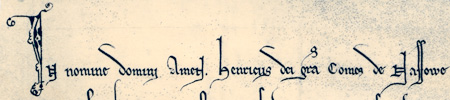 In nomine domini Amen. Henricus dei gra Comes de Nassowe